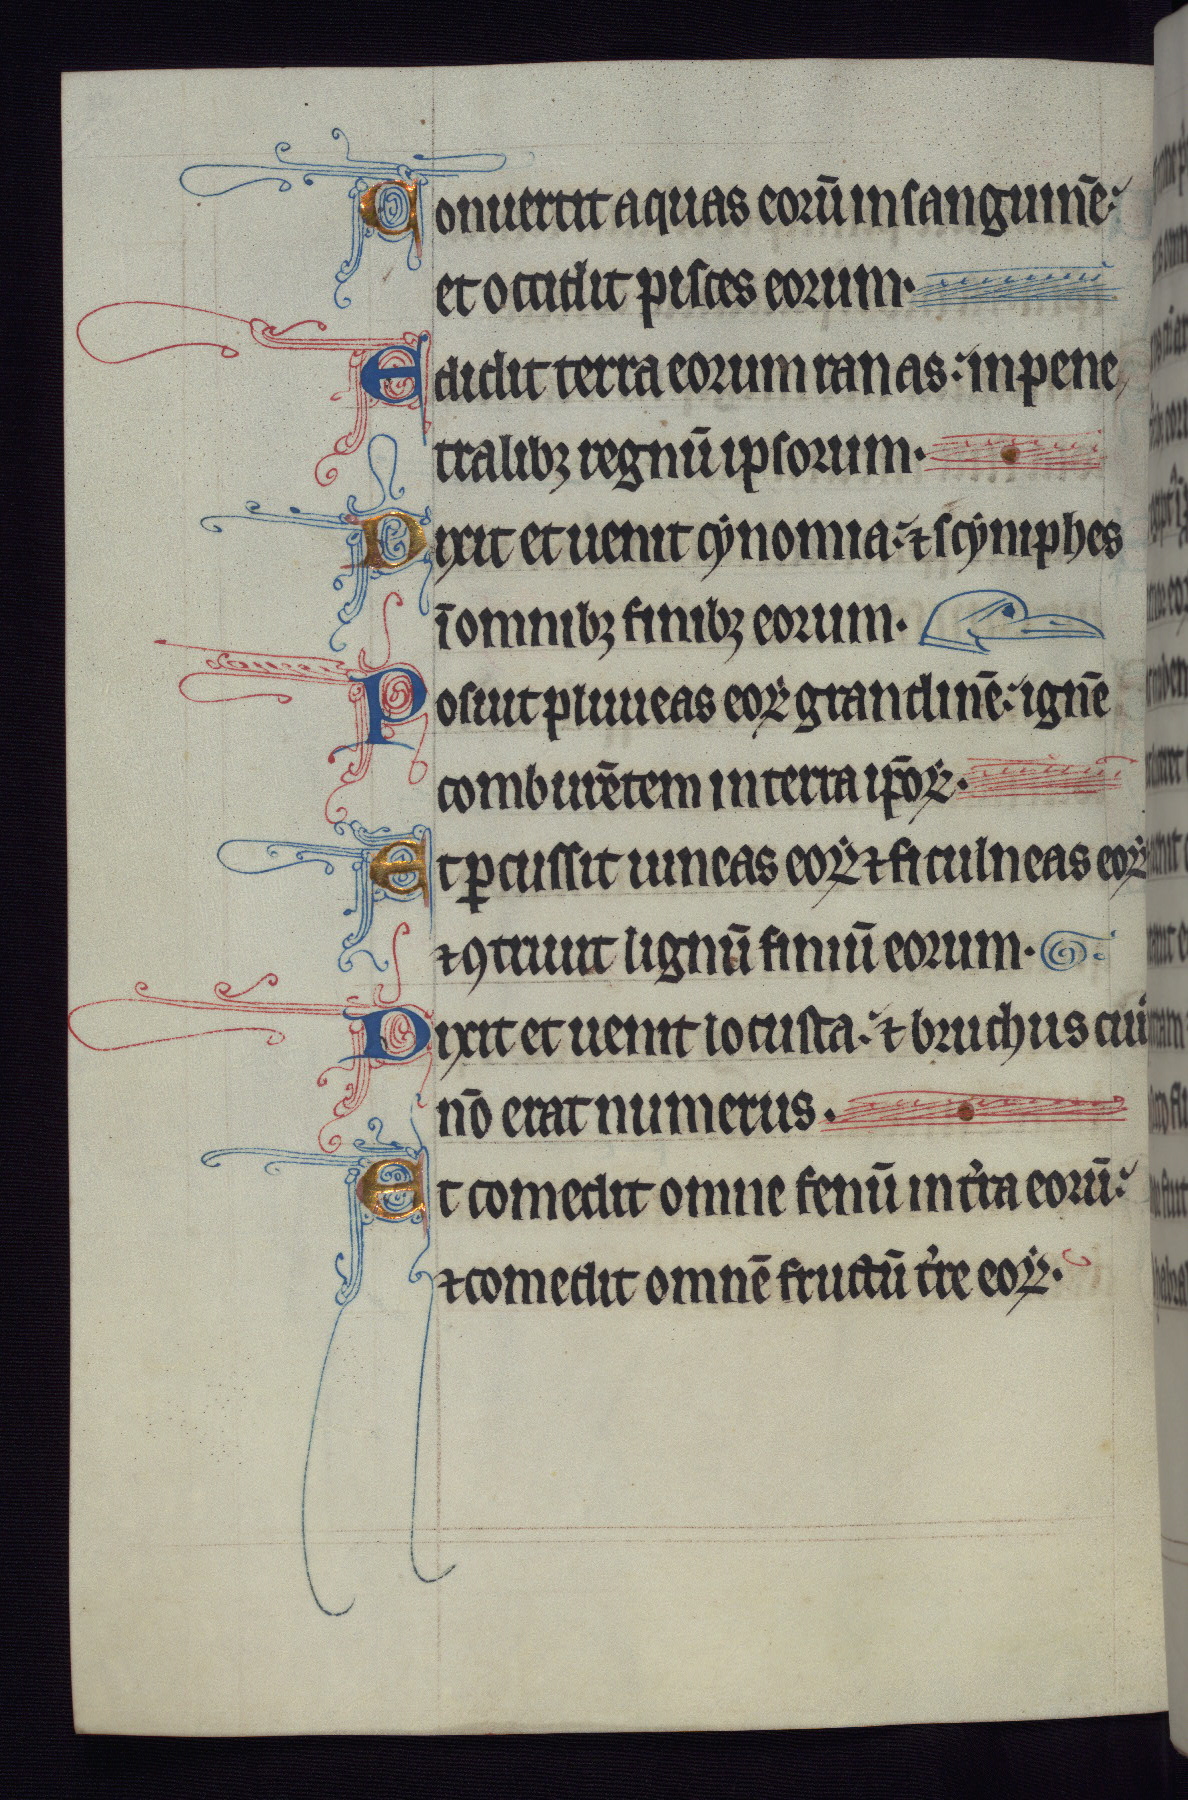 Conuertit aquas eorū in sanguinē:
et occidit pisces eorum.
Edidit terra eorum ranas: in pene
tralibꝫ regnū ipsorum.
Dixit et uenit cẏnomia: ⁊ scẏniphes
ī omnibꝫ finibꝫ eorum.
Posuit pluuieas eoꝝ grandinē: ignē
comburētem in terra ip̄oꝝ.
Et ꝑcussit uineas eoꝝ ⁊ ficulneas eoꝝ
⁊ ꝯtriuit lignū finiū eorum.
Dixit et uenit locusta: ⁊ bruchus cui᷒
nō erat numerus.
Et comedit omne fenū in t̾ra eorū:
⁊ comedit omnē fructū t̾re eoꝝ.